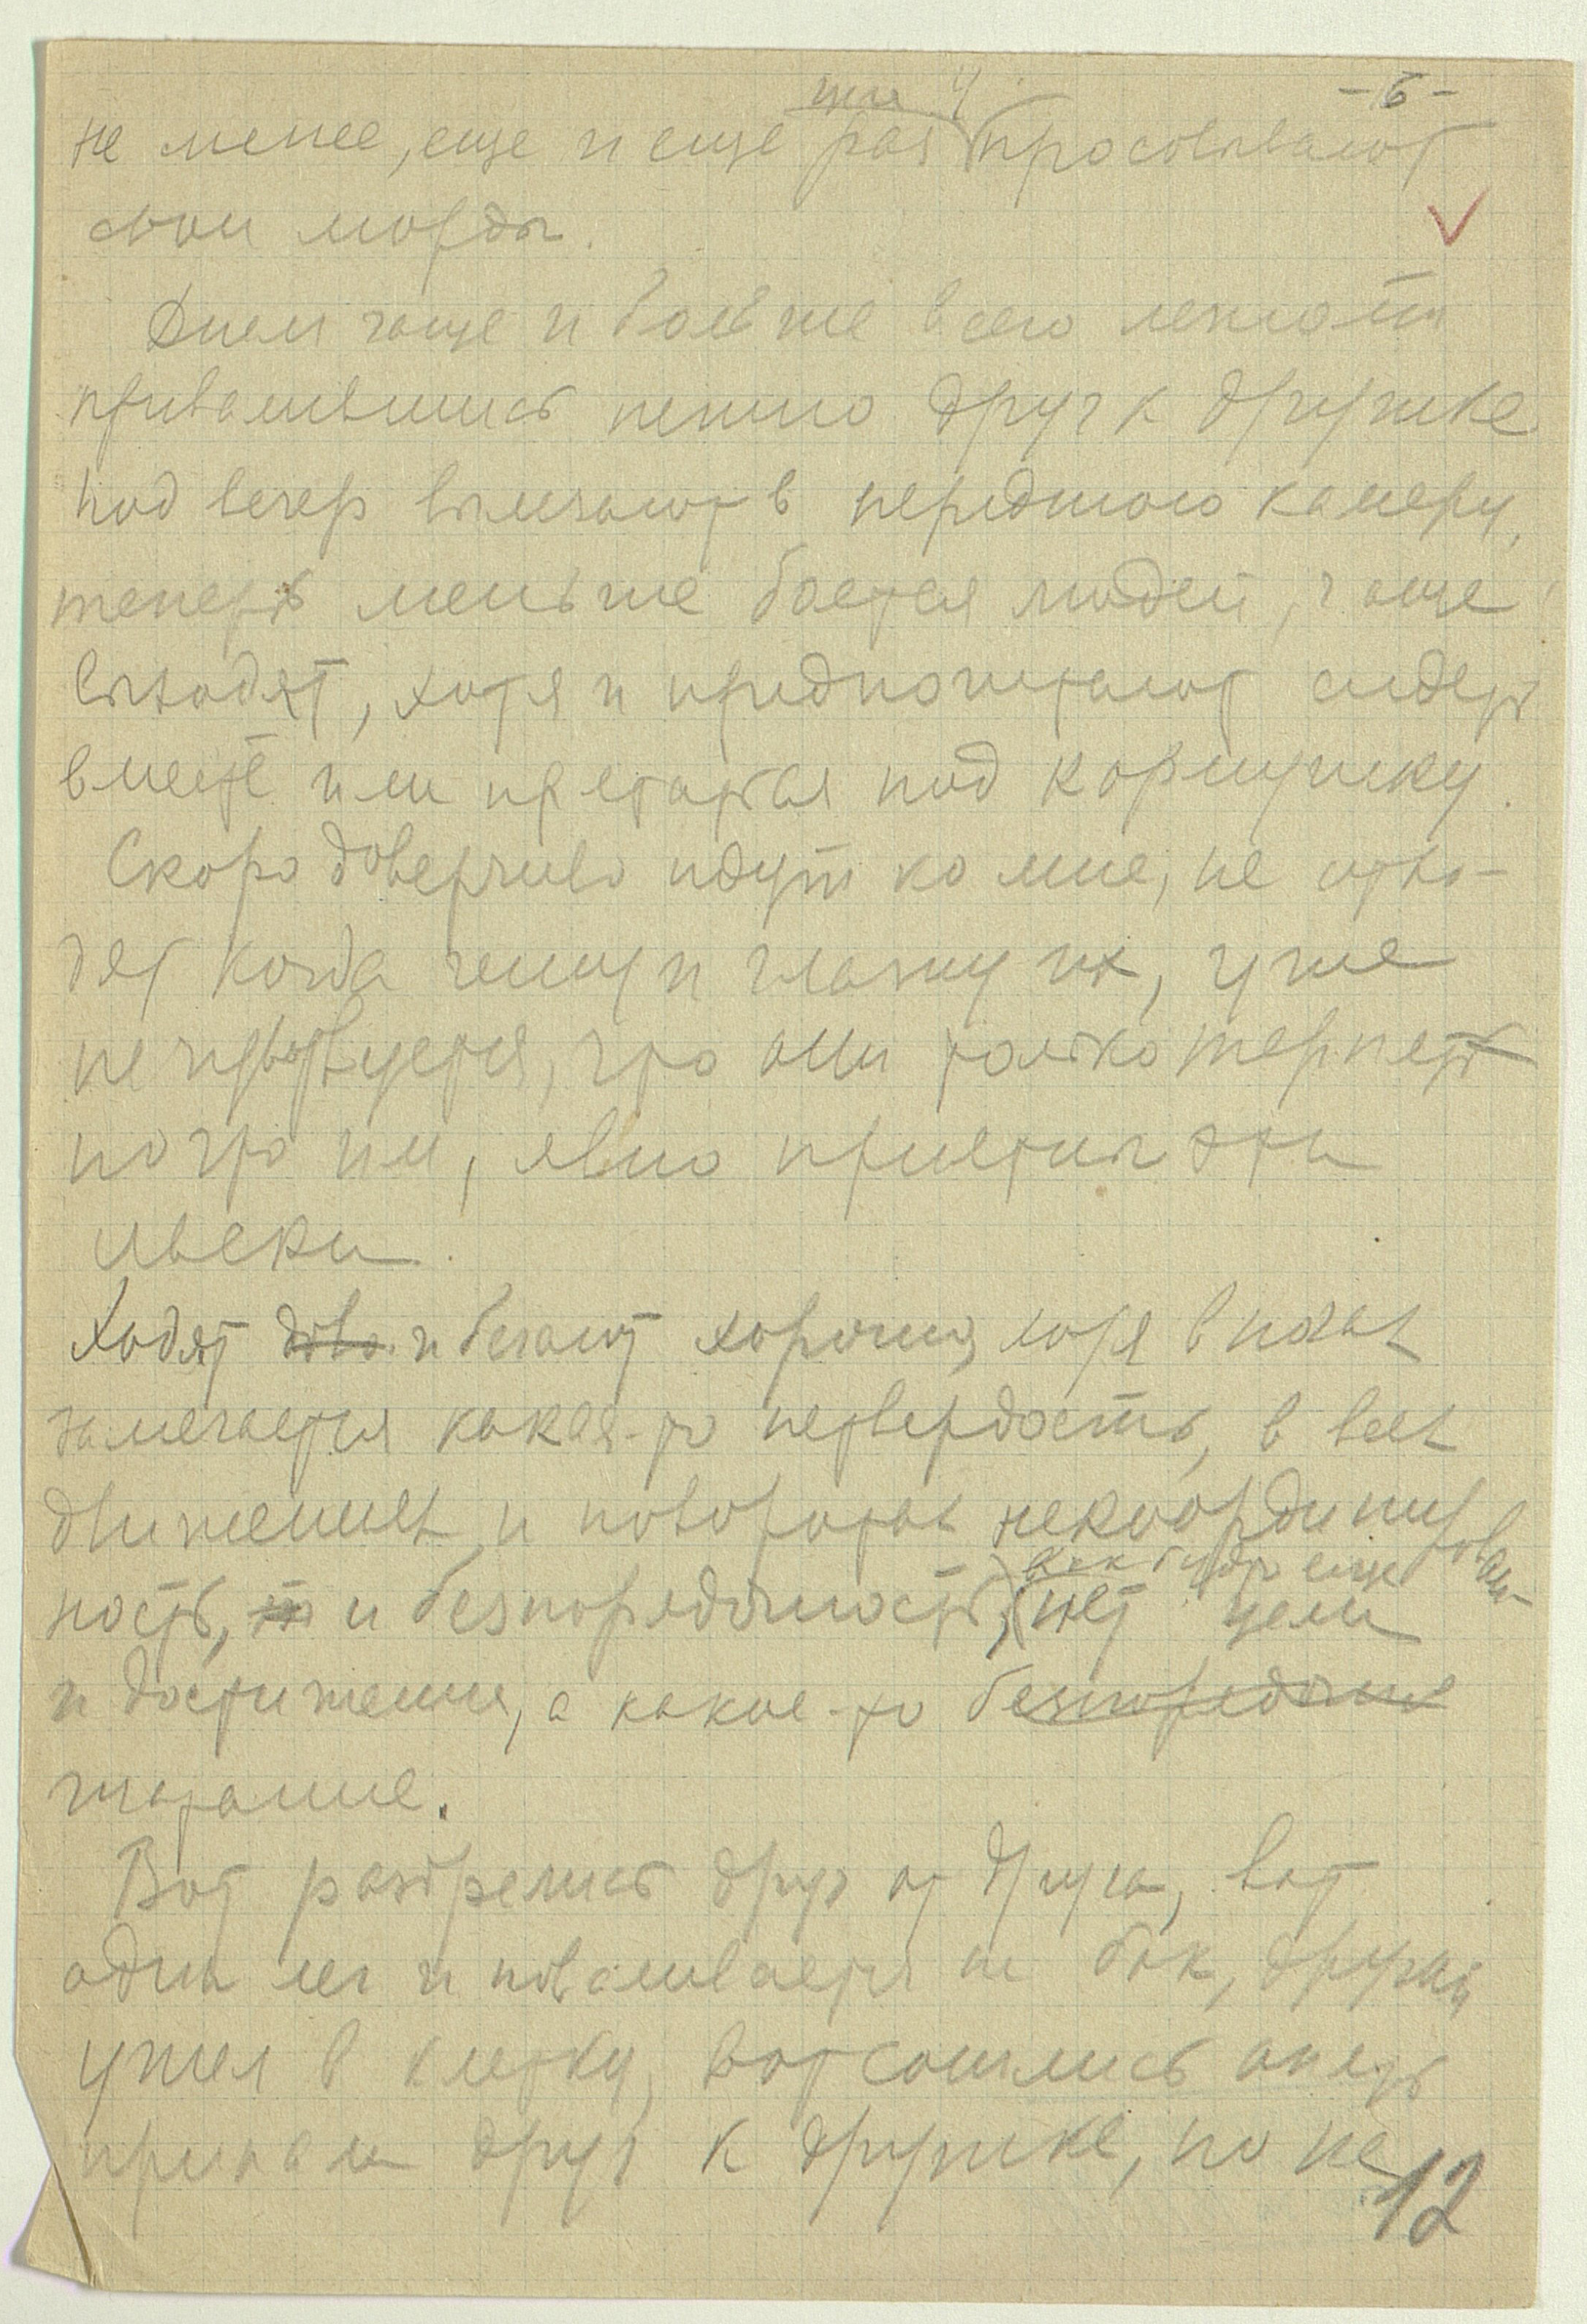 -6-
не менее, еще и еще раз просовывают
свои морды.
Днем чаще и больше всего лежат
привалившись друг к дружке
под вечер вылезают в переднюю камеру,
теперь меньше боятся людей, чаще
выходят, хотя и предпочитают сидеть
вместе или прятаться под кормушку.
Скоро доверчиво идут ко мне, не отхо-
дят когда чешу и глажу их, уже
не чувствуется, что они только терпят
но что им, явно приятны эти
ласки.
Ходят и бегают хорошо, хотя в ногах
замечается какая-то нетвердость, в всех
движениях и поворотах некоординирован-
как будто еще
ность, и безпорядочность, нет цели
и достижения, а какое-то безпорядочное
шатание.
Вот разбрелись друг от друга, вот
один лег и поваливается на бок, другой
ушел в клетку, вот сошлись опять
друг к дружке, но не
12